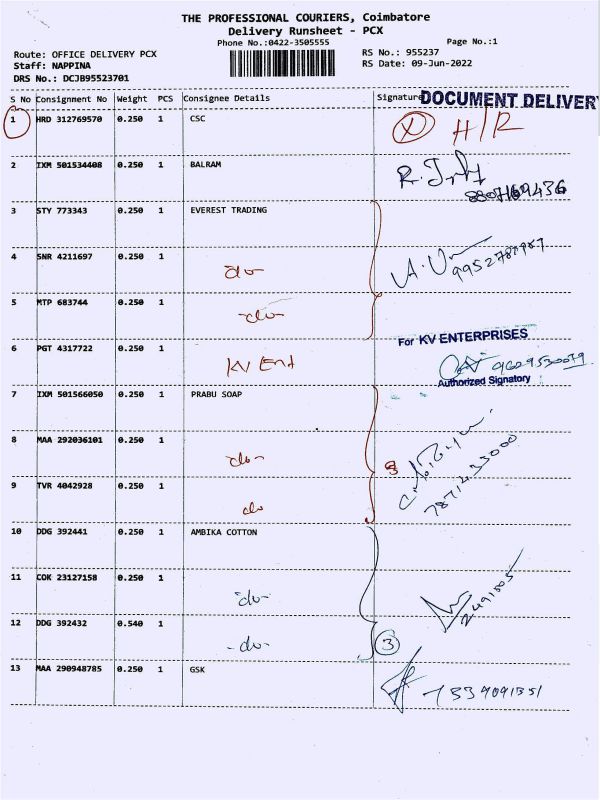 THE PROFESSIONAL COURIERS, Coimbatore
Delivery Runsheet - PCX
Phone No.:0422-3505555
Page No.:1
Route: OFFICE DELIVERY PCX
RS No.: 955237
Staff: NAPPINA
RS Date: 09-Jun-2022
DRS No.: DCJB95523701
S No Consignment No Weight PCS Consignee Details Signature
DOCUMENT DELIVERY
1 HRD 312769570 0.250 1 CSC
H/R
2 IXM 501534408 0.250 1 BALRAM
8807169436
3 STY 773343 0.250 1 EVEREST TRADING
4 SNR 4211697 0.250 1 -do-
5 MTP 683744 0.250 1 -do-
For KV ENTERPRISES
6 PGT 4317722 0.250 1 KV Ent
9629530079
Authorized Signatory
7 IXM 501566050 0.250 1 PRABU SOAP
8 MAA 292036101 0.250 1 -do-
3
7871433000
9 TVR 4042928 0.250 1 do
10 DDG 392441 0.250 1 AMBIKA COTTON
11 COK 23127158 0.250 1 -do-
2491505
12 DDG 392432 0.540 1 -do-
3
13 MAA 290948785 0.250 1 GSK